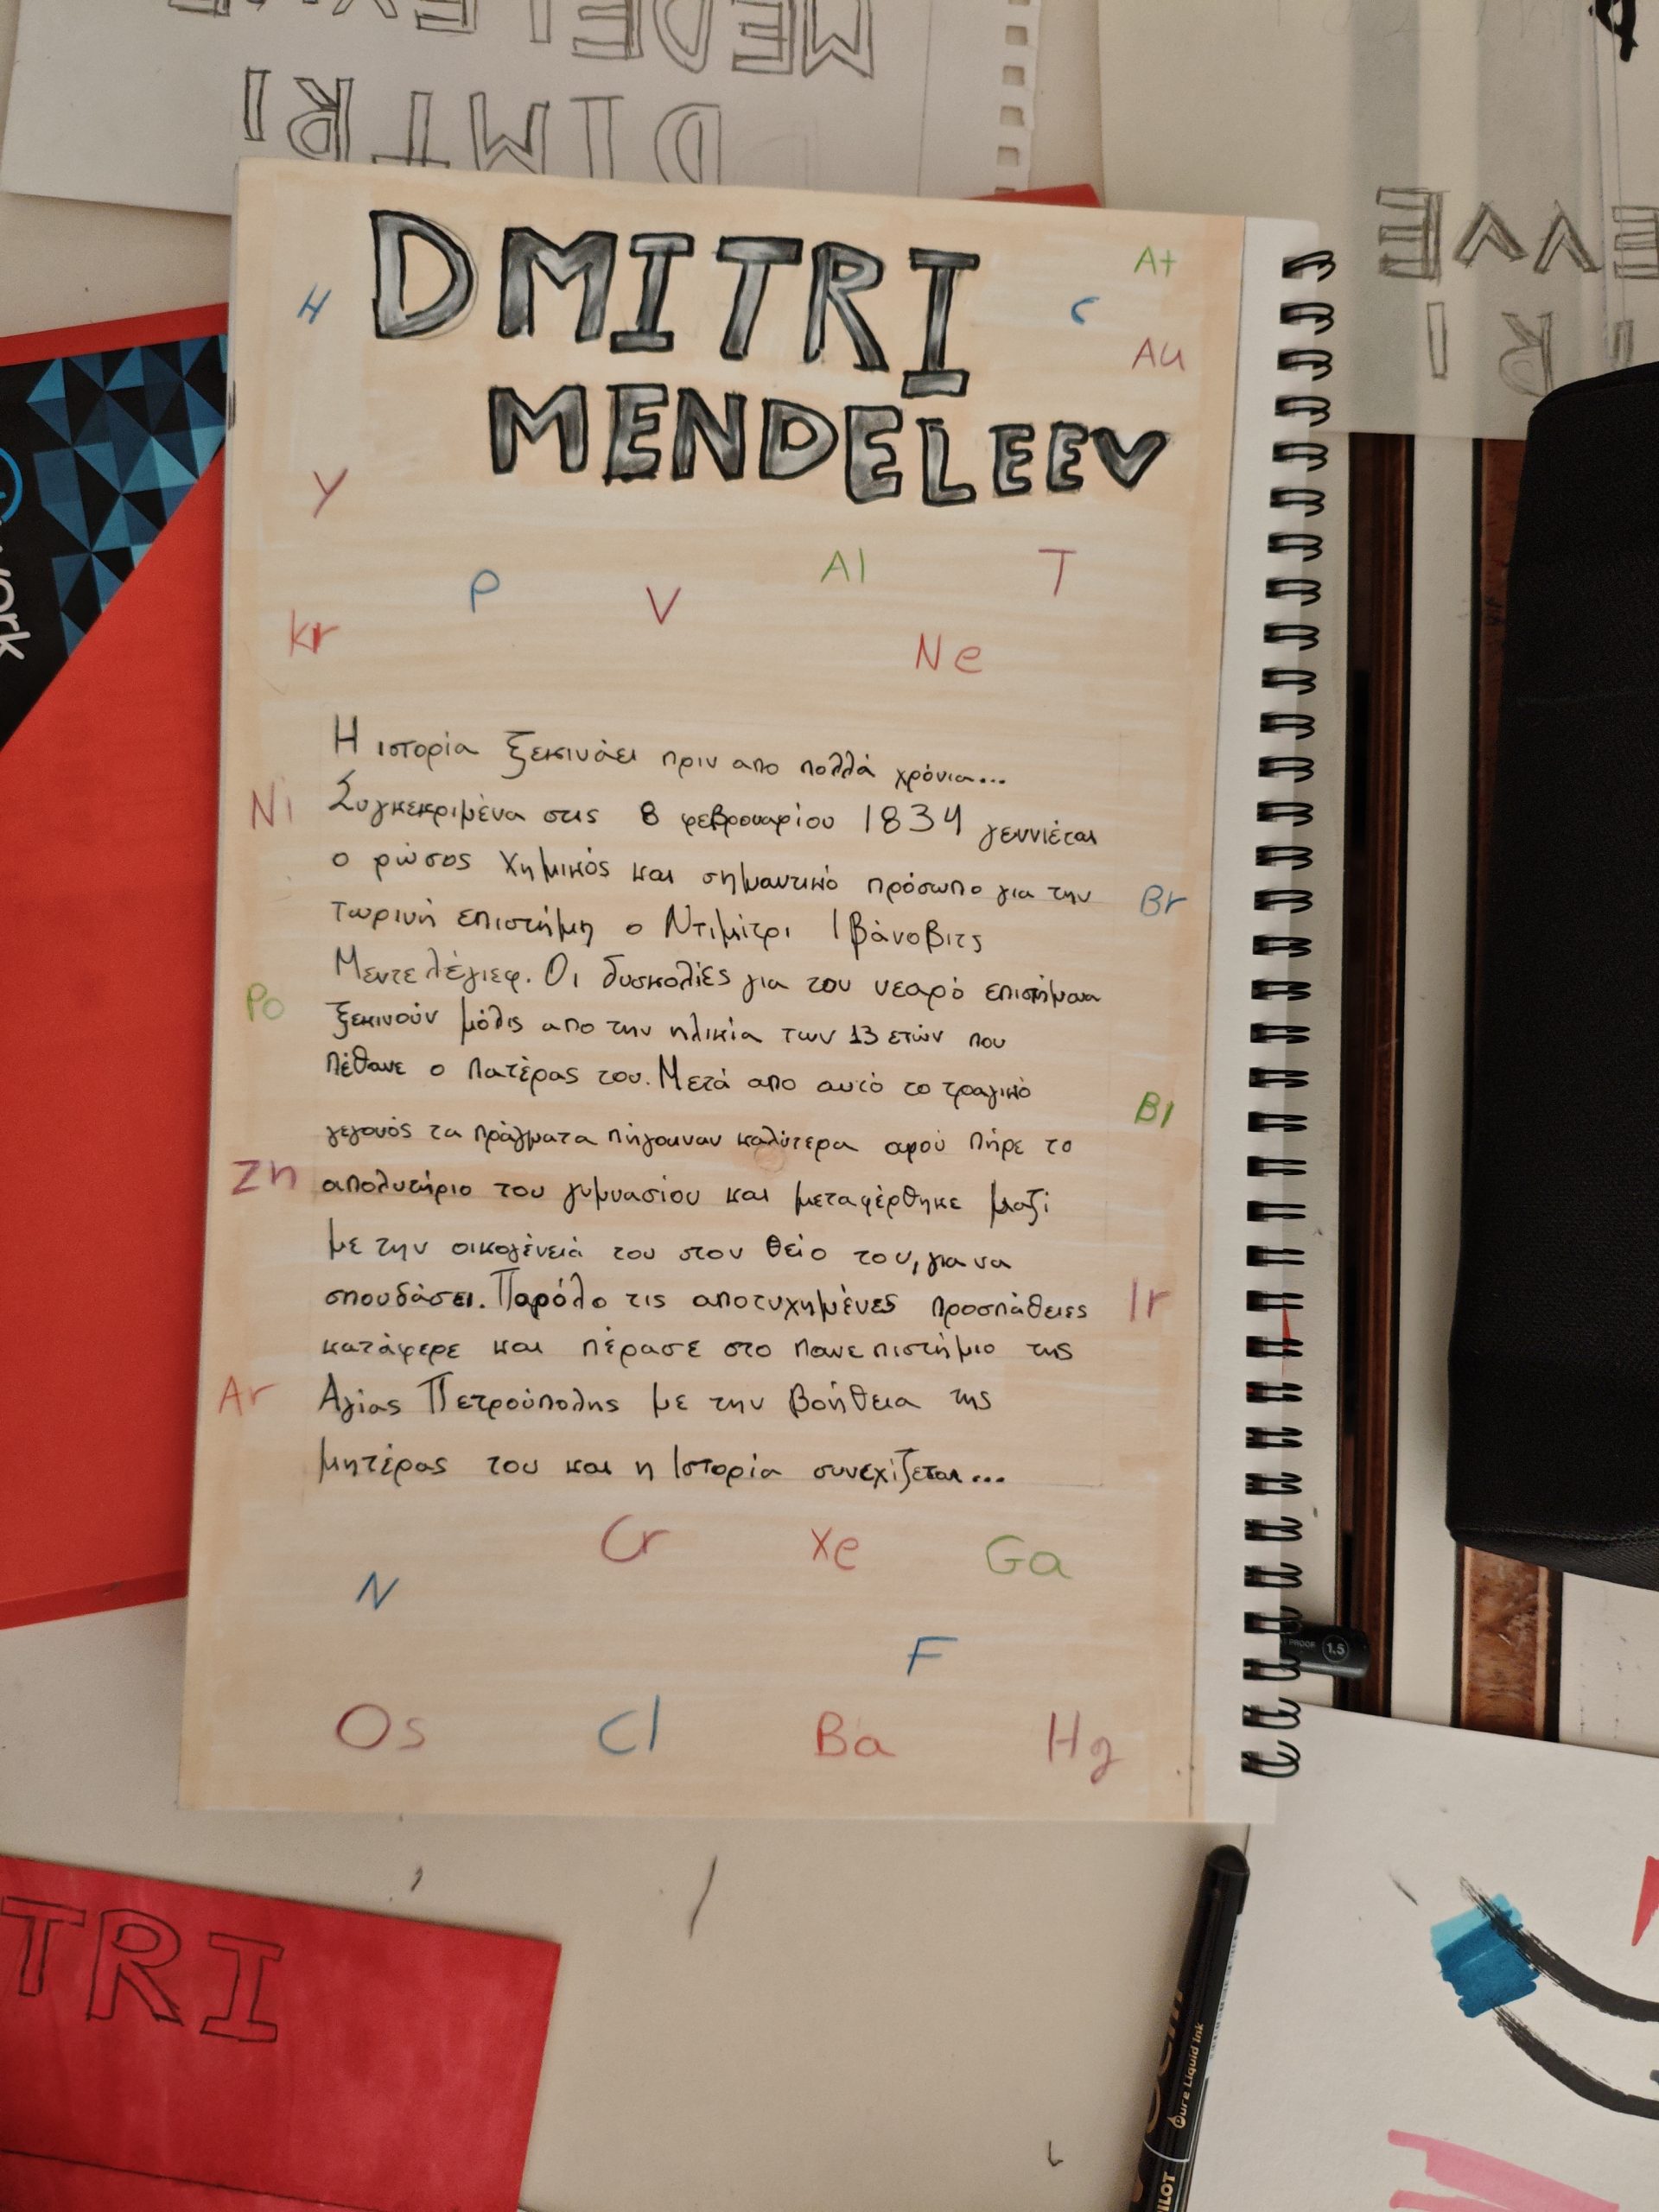 MEDELEEV
DIMTRI
EVVE
RI
DMITRI
MENDELEEV
H
C
At
Au
Y
P
V
Al
T
Kr
Ne
Η ιστορία ξεκινάει πριν απο πολλά χρόνια...
Ni
Συγκεκριμένα στις 8 φεβρουαρίου 1834 γεννιέται
ο ρώσος χημικός και σημαντικό πρόσωπο για την
Br
τωρινή επιστήμη ο Ντιμίτρι Ιβάνοβιτς
Μεντελέγιεφ. Οι δυσκολίες για τον νεαρό επιστήμονα
Po
ξεκινούν μόλις απο την ηλικία των 13 ετών που
πέθανε ο πατέρας του. Μετά απο αυτό το τραγικό
BI
γεγονός τα πράγματα πήγαιναν καλύτερα αφού πήρε το
Zn
απολυτήριο του γυμνασίου και μεταφέρθηκε μαζί
με την οικογένειά του στον θείο του, για να
σπουδάσει. Παρόλο τις αποτυχημένες προσπάθειες
Ir
κατάφερε και πέρασε στο πανεπιστήμιο της
Ar
Αγίας Πετρούπολης με την βοήθεια της
μητέρας του και η Ιστορία συνεχίζεται...
Cr
Xe
Ga
N
F
Os
Cl
Ba
Hg
PROOF 1.5
TRI
Pure Liquid Ink